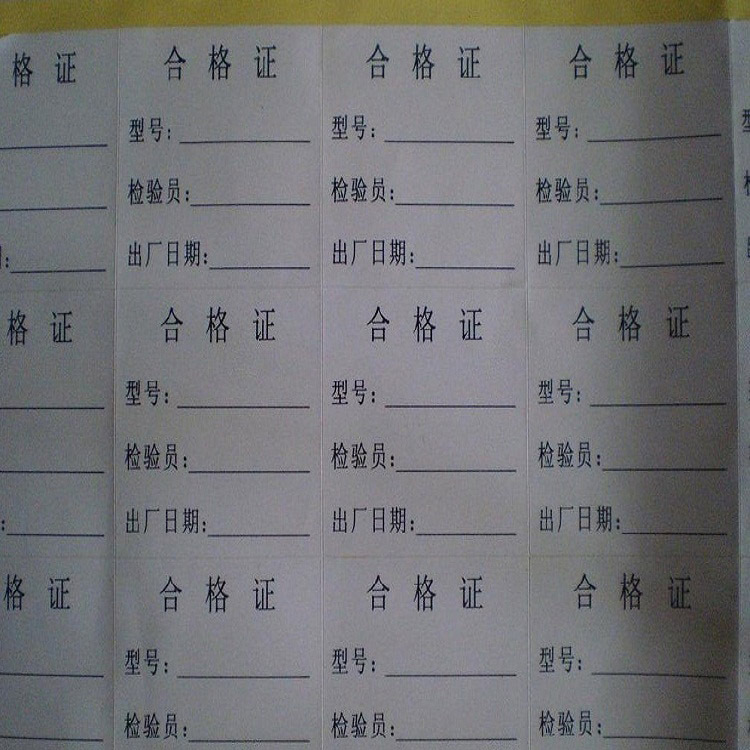 格 证 合 格 证 合 格 证 合 格 证
型号: 型号: 型号: 型
检验员: 检验员: 检验员:
: 出厂日期: 出厂日期: 出厂日期:
格 证 合 格 证 合 格 证 合 格 证
型号: 型号: 型号:
检验员: 检验员: 检验员:
: 出厂日期: 出厂日期: 出厂日期:
格 证 合 格 证 合 格 证 合 格 证
型号: 型号: 型号:
检验员: 检验员: 检验员: